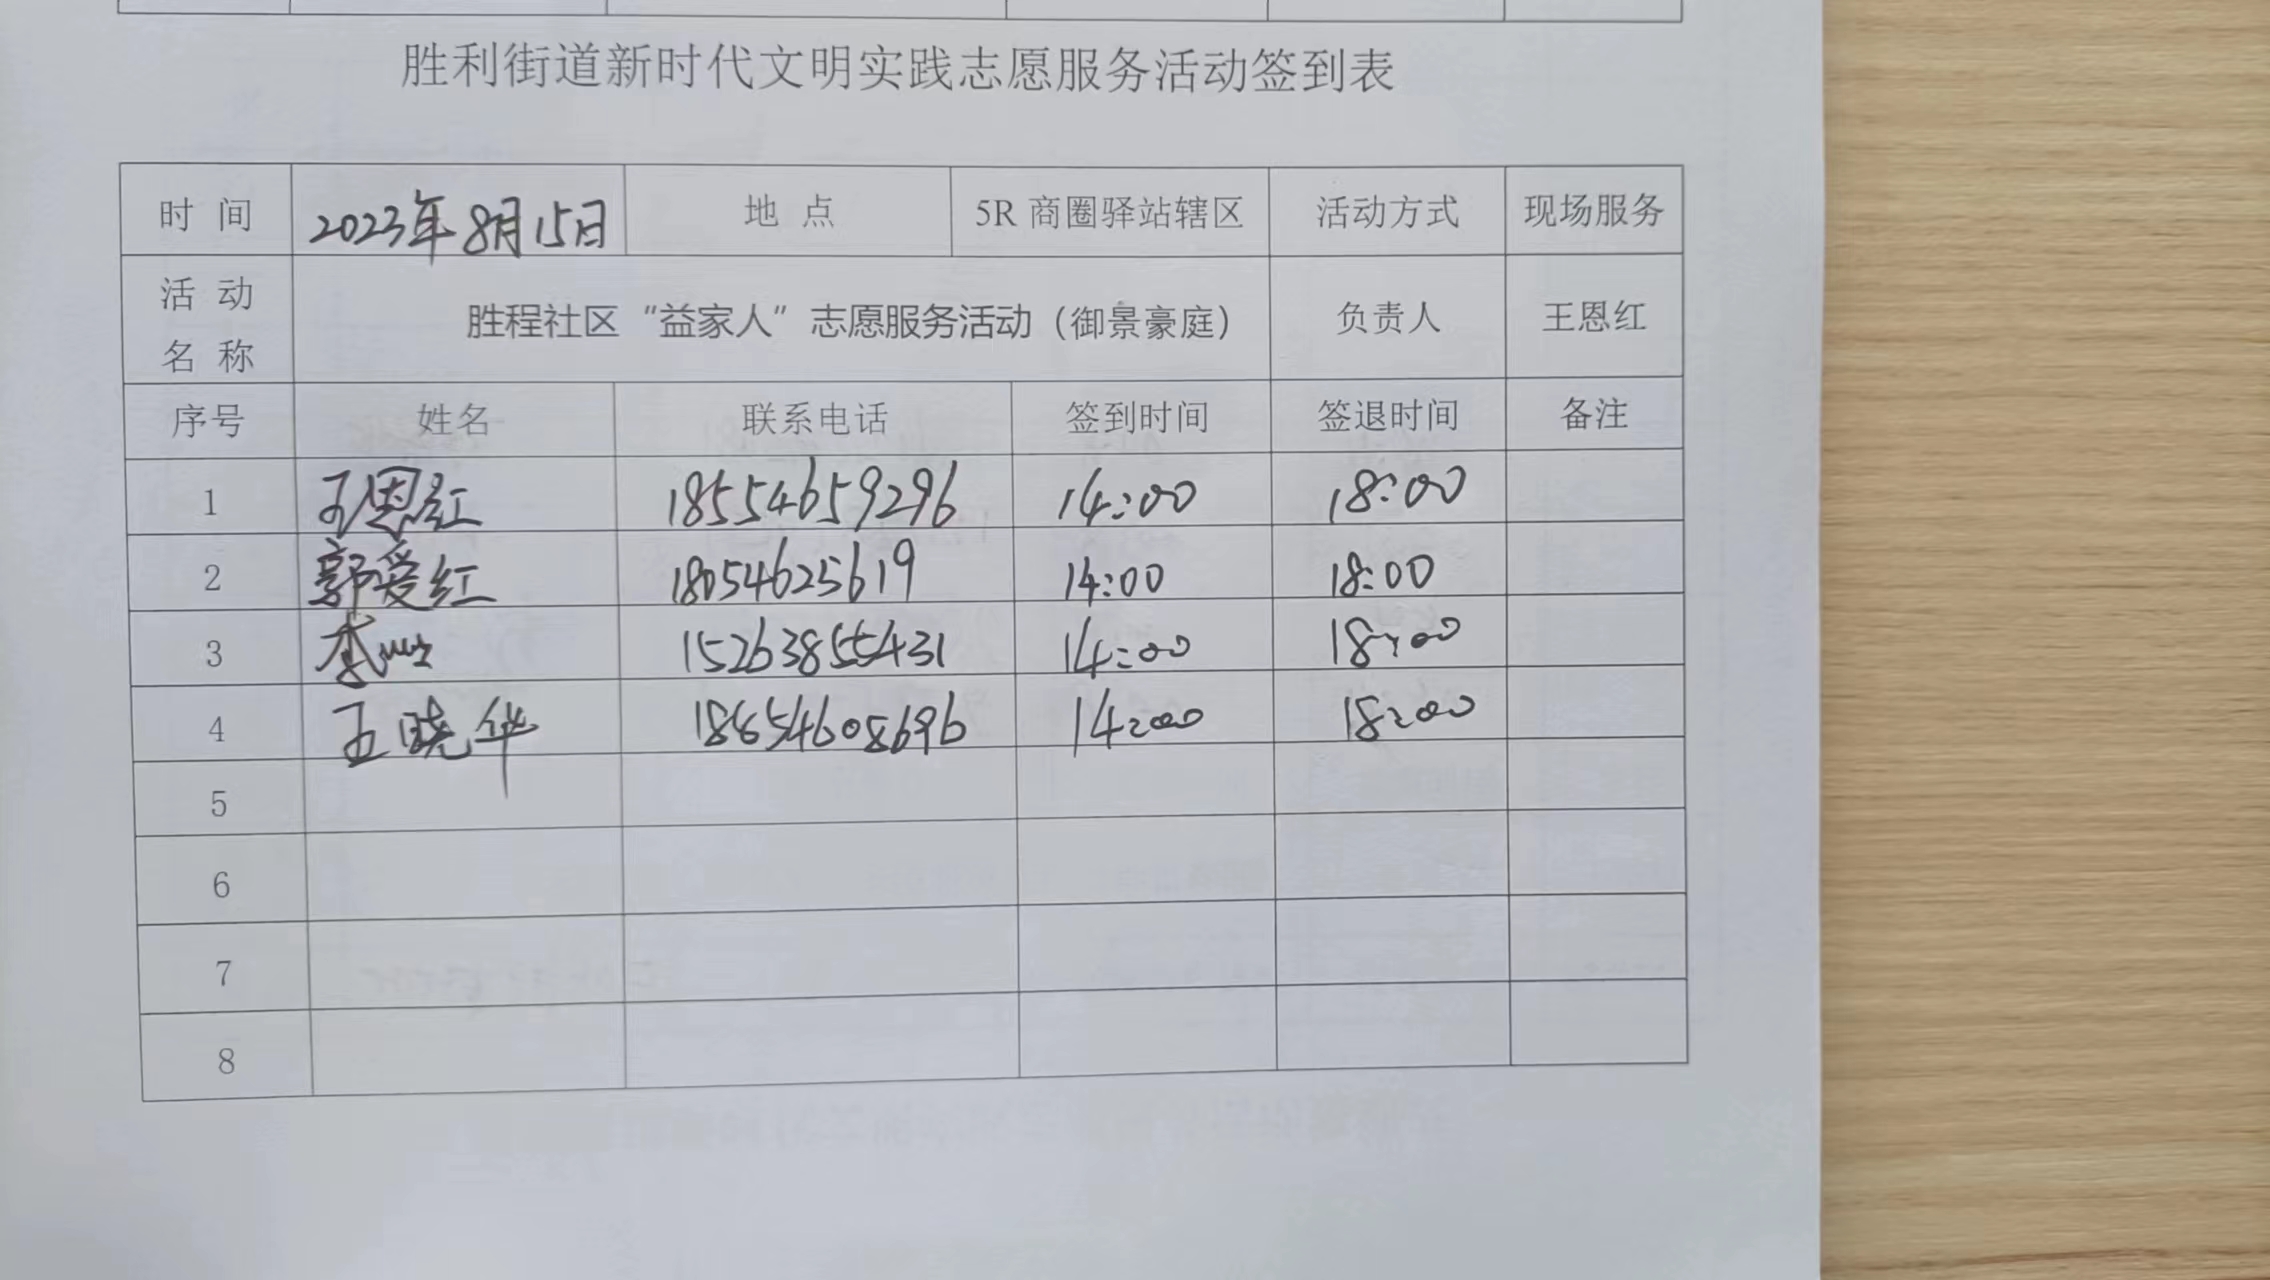 胜利街道新时代文明实践志愿服务活动签到表
时 间 2023年8月15日 地 点 5R 商圈驿站辖区 活动方式 现场服务
活 动 名 称 胜程社区“益家人”志愿服务活动（御景豪庭） 负责人 王恩红
序号 姓名 联系电话 签到时间 签退时间 备注
1 王恩红 18554659296 14:00 18:00
2 郭爱红 18054625619 14:00 18:00
3 15263855431 14:00 18:00
4 王晓华 18654608696 14:00 18:00
5
6
7
8